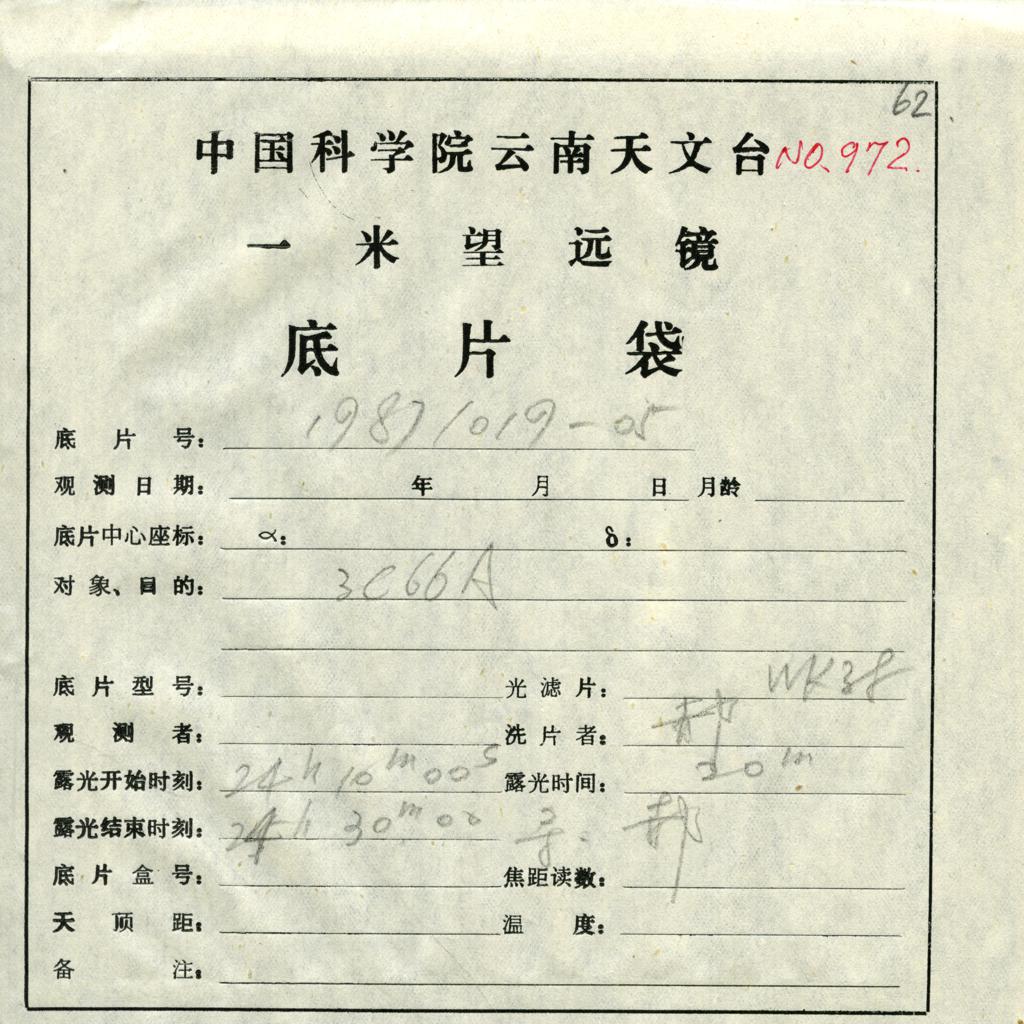 62
中国科学院云南天文台 NO.972.
一米望远镜
底片袋
底片号: 19871019-05
观测日期: 年 月 日 月龄
底片中心座标: α: δ:
对象、目的: 3C66A
底片型号: 光滤片:
观测者: 洗片者: 郝
露光开始时刻: 24h 10m 00s 露光时间: 20m
露光结束时刻: 24h 30m 00 郝
底片盒号: 焦距读数:
天顶距: 温度:
备注: